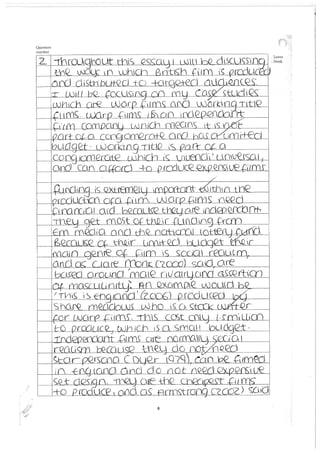 Question
number
Leave
blank
2 Throughout this essay I will be discussing
the ways in which British film is produced
and distributed to targeted audiences.
I will be focusing on my case studies
which are warp films and working title
films. warp films is an independant
film company which means it is not
part of a conglomerate and has a limited
budget. Working title is part of a
conglomerate which is vivendi universal,
and can afford to produce expensive films.
Funding is extremely important within the
production of a film. Warp films need
financial aid because they are independant.
They get most of their funding from
Em media and the national lottery fund.
Because of their limited budget their
main genre of film is social realism,
and as Claire Monk (2000) said, are
based around 'male rivalry and assertion
of masculinity'. An example would be
'This is england' (2006) produced by
Shane meadows who is a stock writer
for warp films. This cost only
to produce, which is a small budget.
Independant films are normally social
realism because they do not need
star persona (Dyer 1979), can be filmed
in england and do not need expensive
set design. They are the cheapest films
to produce, and as Armstrong (2002) said
8